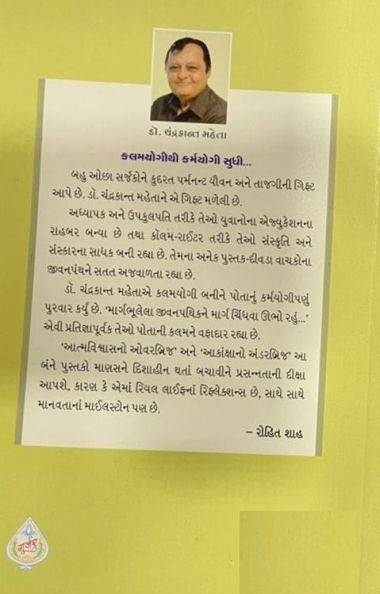 ડૉ. ચંદ્રકાન્ત મહેતા
કલમયોગીથી કર્મયોગી સુધી...
બહુ ઓછા સર્જકોને કુદરત પર્મનન્ટ યૌવન અને તાજગીની ગિફ્ટ
આપે છે. ડૉ. ચંદ્રકાન્ત મહેતાને એ ગિફ્ટ મળેલી છે.
અધ્યાપક અને ઉપકુલપતિ તરીકે તેઓ યુવાનોના એજ્યુકેશનના
રાહબર બન્યા છે તથા કૉલમ-રાઈટર તરીકે તેઓ સંસ્કૃતિ અને
સંસ્કારના સાધક બની રહ્યા છે. તેમના અનેક પુસ્તક-દીવડા વાચકોના
જીવનપંથને સતત અજવાળતા રહ્યા છે.
ડૉ. ચંદ્રકાન્ત મહેતાએ કલમયોગી બનીને પોતાનું કર્મયોગીપણું
પુરવાર કર્યું છે. ‘માર્ગભૂલેલા જીવનપથિકને માર્ગ ચિંધવા ઊભો રહું...’
એવી પ્રતિજ્ઞાપૂર્વક તેઓ પોતાની કલમને વફાદાર રહ્યા છે.
‘આત્મવિશ્વાસનો ઓવરબ્રિજ’ અને ‘આકાંક્ષાનો અંડરબ્રિજ’ આ
બંને પુસ્તકો માણસને દિશાહીન થતાં બચાવીને પ્રસન્નતાની દીક્ષા
આપશે, કારણ કે એમાં રિયલ લાઈફનાં રિફ્લેક્શન્સ છે, સાથે સાથે
માનવતાનાં માઈલસ્ટોન પણ છે.
– રોહિત શાહ
ગૂર્જર